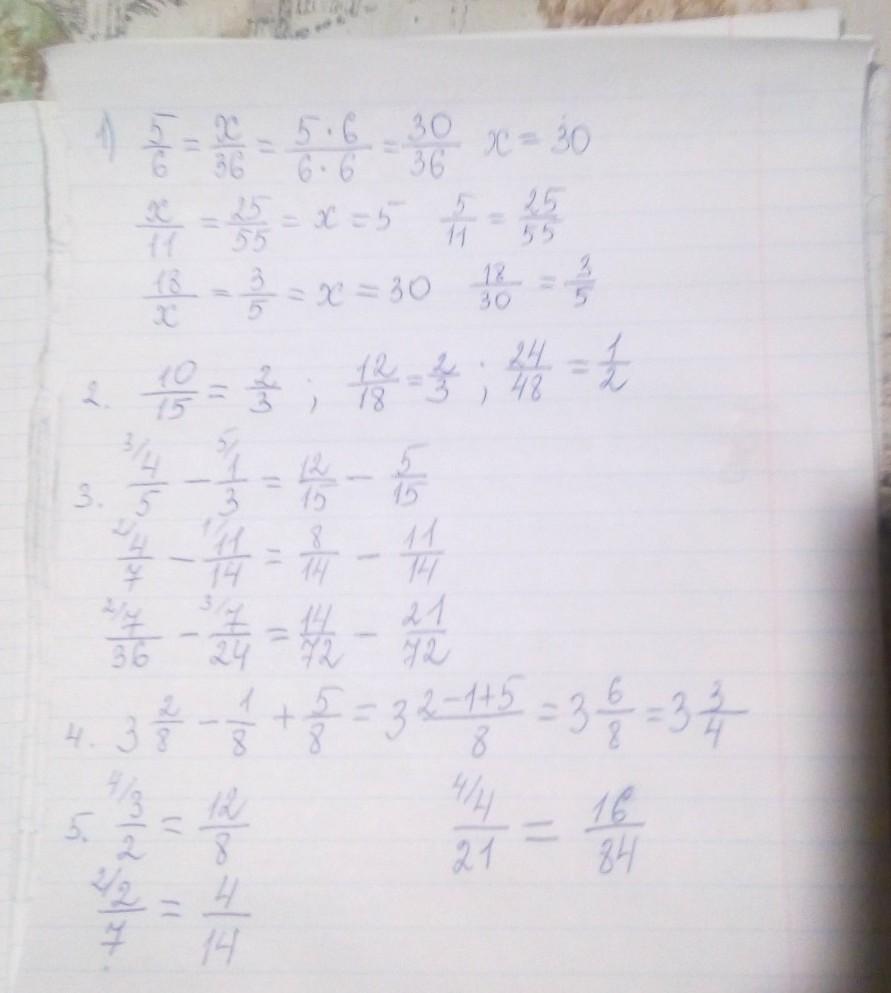 1) 5/6 = x/36 = 5·6/6·6 = 30/36 x = 30
x/11 = 25/55 = x = 5 5/11 = 25/55
18/x = 3/5 = x = 30 18/30 = 3/5
2. 10/15 = 2/3 ; 12/18 = 2/3 ; 24/48 = 1/2
3. 3/ 4/5 − 5/ 1/3 = 12/15 − 5/15
2/ 4/7 − 1/ 11/14 = 8/14 − 11/14
2/ 7/36 − 3/ 7/24 = 14/72 − 21/72
4. 3 2/8 − 1/8 + 5/8 = 3 2−1+5/8 = 3 6/8 = 3 3/4
5. 4/ 3/2 = 12/8 4/ 4/21 = 16/84
2/ 2/7 = 4/14